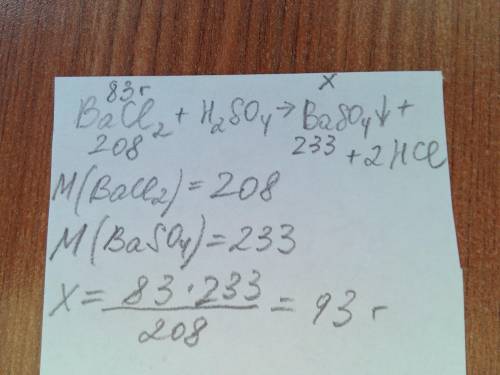 83 г x
BaCl₂ + H₂SO₄ → BaSO₄↓ +
208 233 + 2HCl
M(BaCl₂) = 208
M(BaSO₄) = 233
X = 83 · 233 / 208 = 93 г